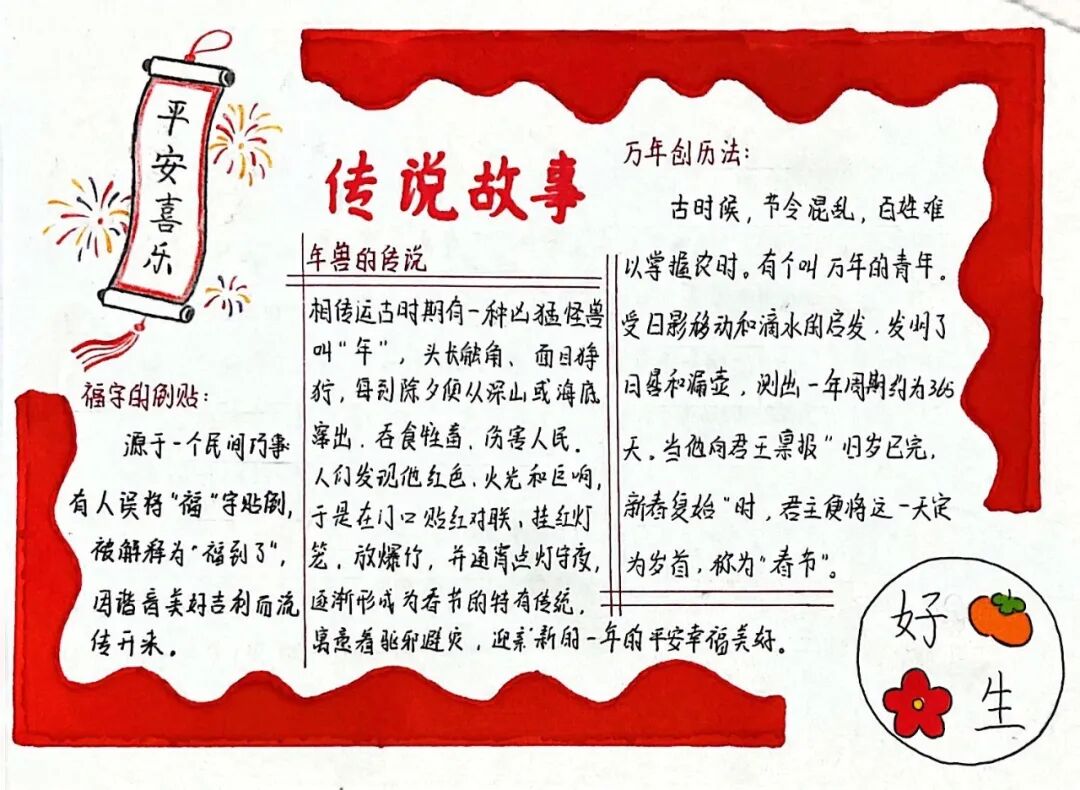 平安喜乐
传说故事
福字的倒贴:
源于一个民间巧事
有人误将"福"字贴倒,
被解释为"福到了",
因谐音美好吉利而流
传开来。
年兽的传说
相传远古时期有一种凶猛怪兽
叫"年",头长触角、面目狰
狞,每到除夕便从深山或海底
窜出,吞食牲畜,伤害人民。
人们发现他红色、火光和巨响,
于是在门口贴红对联、挂红灯
笼、放爆竹,并通宵点灯守夜,
逐渐形成为春节的特有传统,
寓意着驱邪避灾,迎来新的一年的平安幸福美好。
万年创历法:
古时候,节令混乱,百姓难
以掌握农时。有个叫万年的青年。
受日影移动和滴水的启发,发明了
日晷和漏壶,测出一年周期约为365
天。当他向君王禀报"旧岁已完,
新春复始"时,君主便将这一天定
为岁首,称为"春节"。
好
生